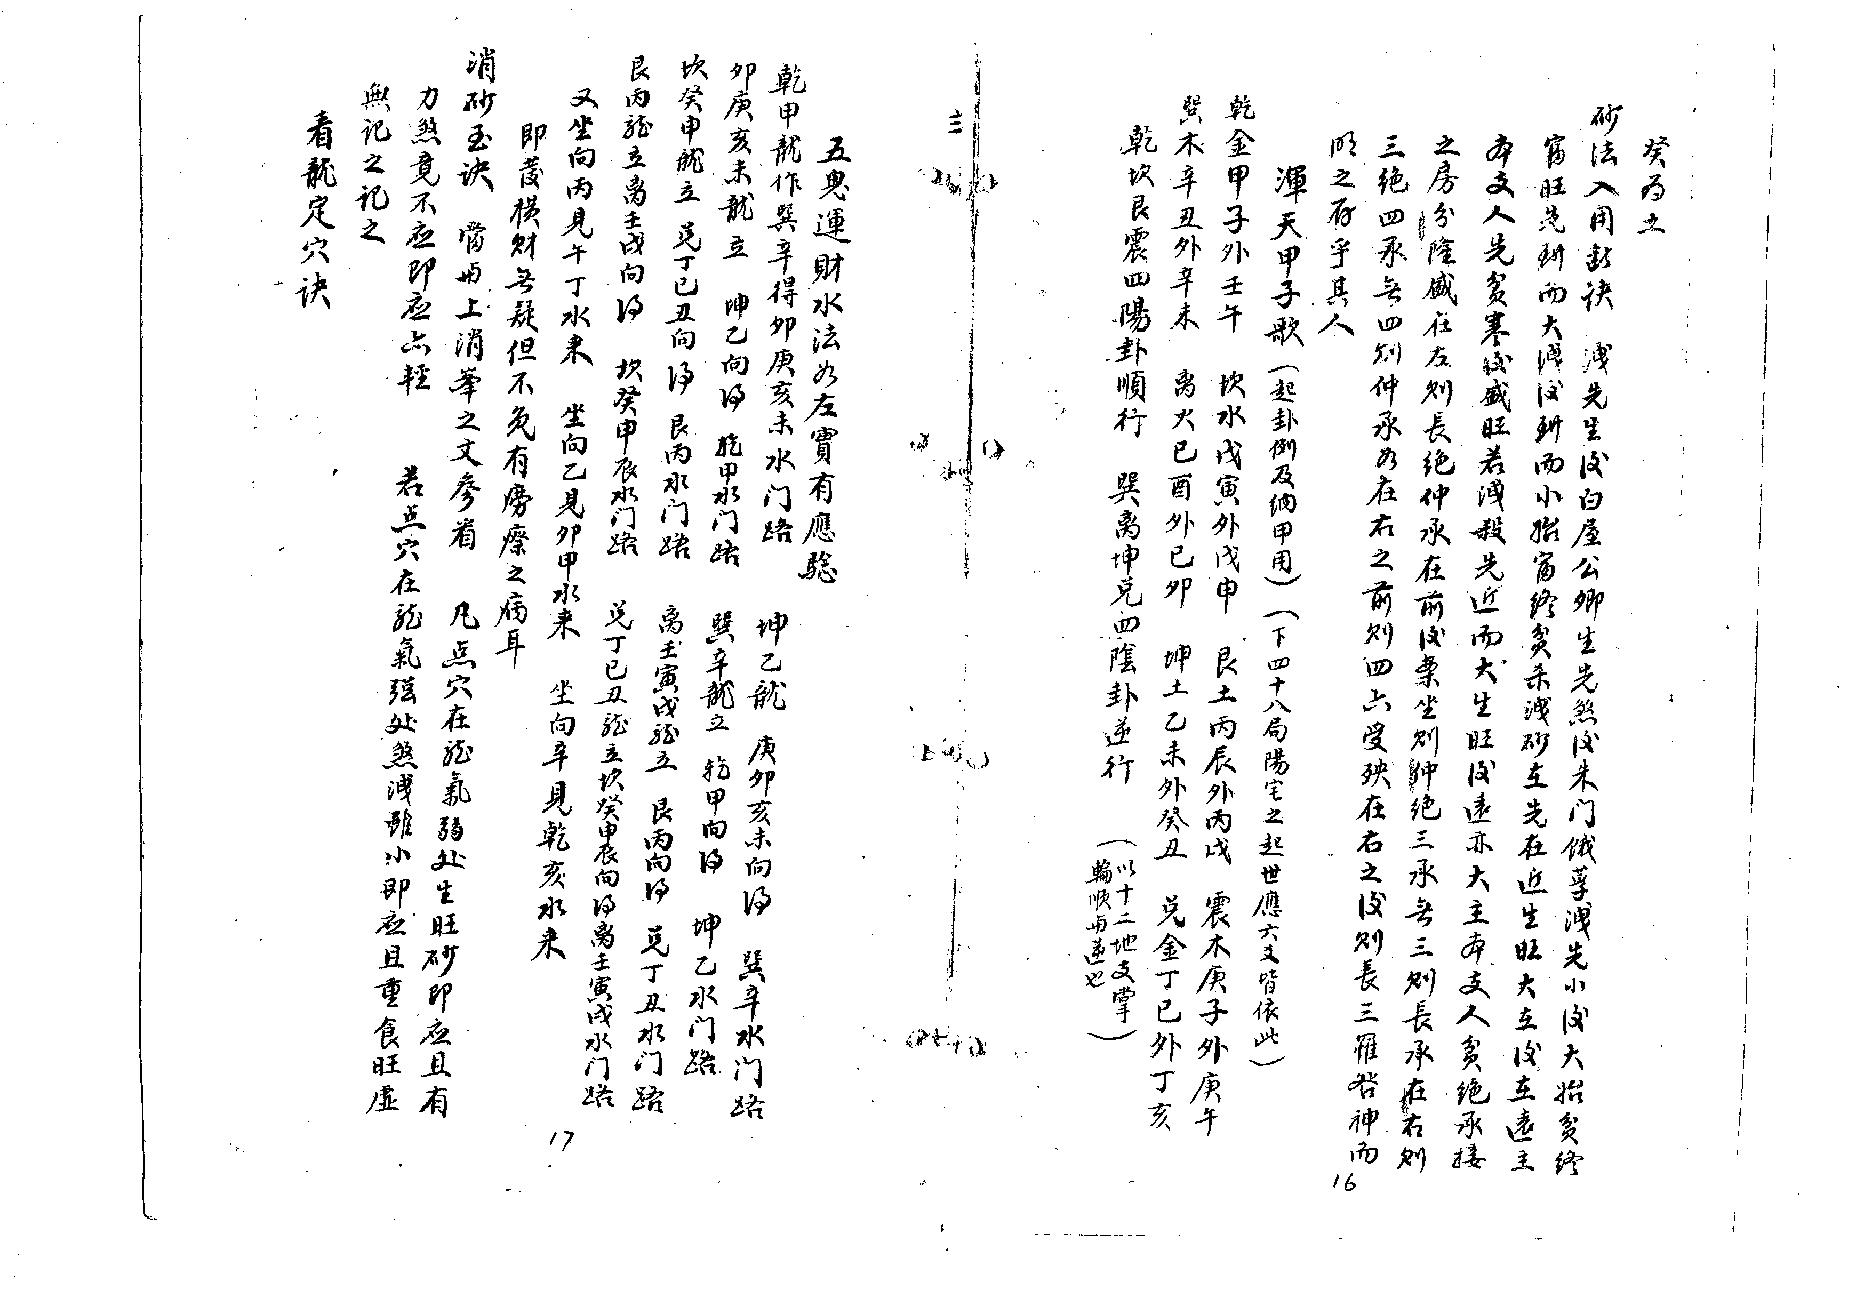 癸为土
砂法入用訣 洩先生後白屋公卿生先煞後朱门饿莩洩先小後大始貧終
富旺先而大洩後而小始富終貧杀洩砂主先在近生旺大主後在遠主
本支人先貧寒後盛旺若洩殺先近而大生旺後遠亦大主本支人貧絶承接
之房分隆盛在左则長绝仲承在前後案坐则仲绝三承無三则長承在右则
三绝四承無四则仲承如在右之前则四亦受殃在右之後则長三罹咎神而
明之存乎其人
渾天甲子歌（起卦例及納甲用）（下四十八局陽宅之起世應六爻皆依此）
乾金甲子外壬午 坎水戊寅外戊申 艮土丙辰外丙戌 震木庚子外庚午
巽木辛丑外辛未 离火己酉外己卯 坤土乙未外癸丑 兑金丁巳外丁亥
乾坎艮震四陽卦順行 巽离坤兑四陰卦逆行 （以十二地支掌
輪順与逆也）
16
三
五鬼運財水法如左實有應驗
乾甲龍作巽辛得卯庚亥未水门路 坤乙龍 庚卯亥未向得 巽辛水门路
卯庚亥未龍立 坤乙向得 乾甲水门路 巽辛龍立 乾甲向得 坤乙水门路
坎癸申龍立 兑丁巳丑向得 艮丙水门路 离壬寅戌龍立 艮丙向得 兑丁丑水门路
艮丙龍立离壬戌向得 坎癸申辰水门路 兑丁巳丑龍立坎癸申辰向得离壬寅戌水门路
又坐向丙見午丁水来 坐向乙見卯甲水来 坐向辛見乾亥水来
即發横财無疑但不免有癆瘵之病耳
消砂玉诀 當与上消峯之文参看 凡点穴在龍氣弱处生旺砂即应且有
力煞竟不应即应亦輕 若点穴在龍氣强处煞洩雖小即应且重食旺虚
無记之记之
看龍定穴诀
17